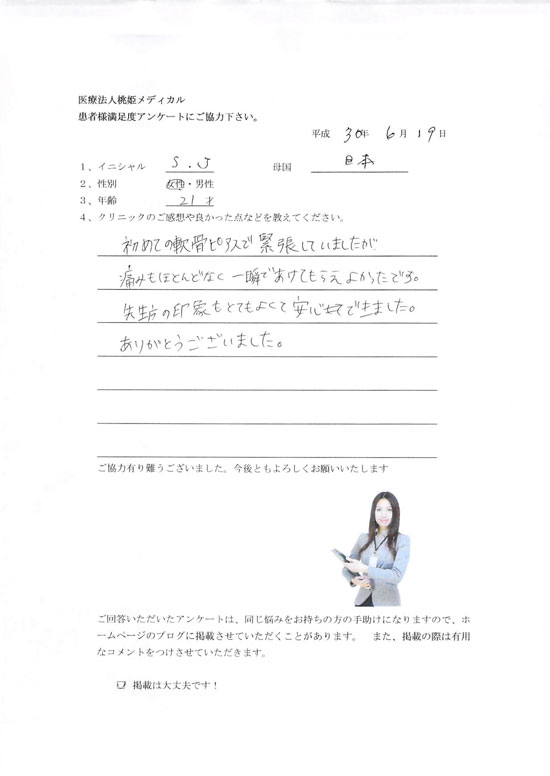 医療法人桃姫メディカル
患者様満足度アンケートにご協力下さい。
平成 30年 6月 19日
1、イニシャル S.J 母国 日本
2、性別 女性・男性
3、年齢 21才
4、クリニックのご感想や良かった点などを教えてください。
初めての軟骨ピアスで緊張していましたが
痛みもほとんどなく一瞬であけてもらえよかったです。
先生方の印象もとてもよくて安心できました。
ありがとうございました。
ご協力有り難うございました。今後ともよろしくお願いいたします
ご回答いただいたアンケートは、同じ悩みをお持ちの方の手助けになりますので、ホ
ームページのブログに掲載させていただくことがあります。 また、掲載の際は有用
なコメントをつけさせていただきます。
掲載は大丈夫です！